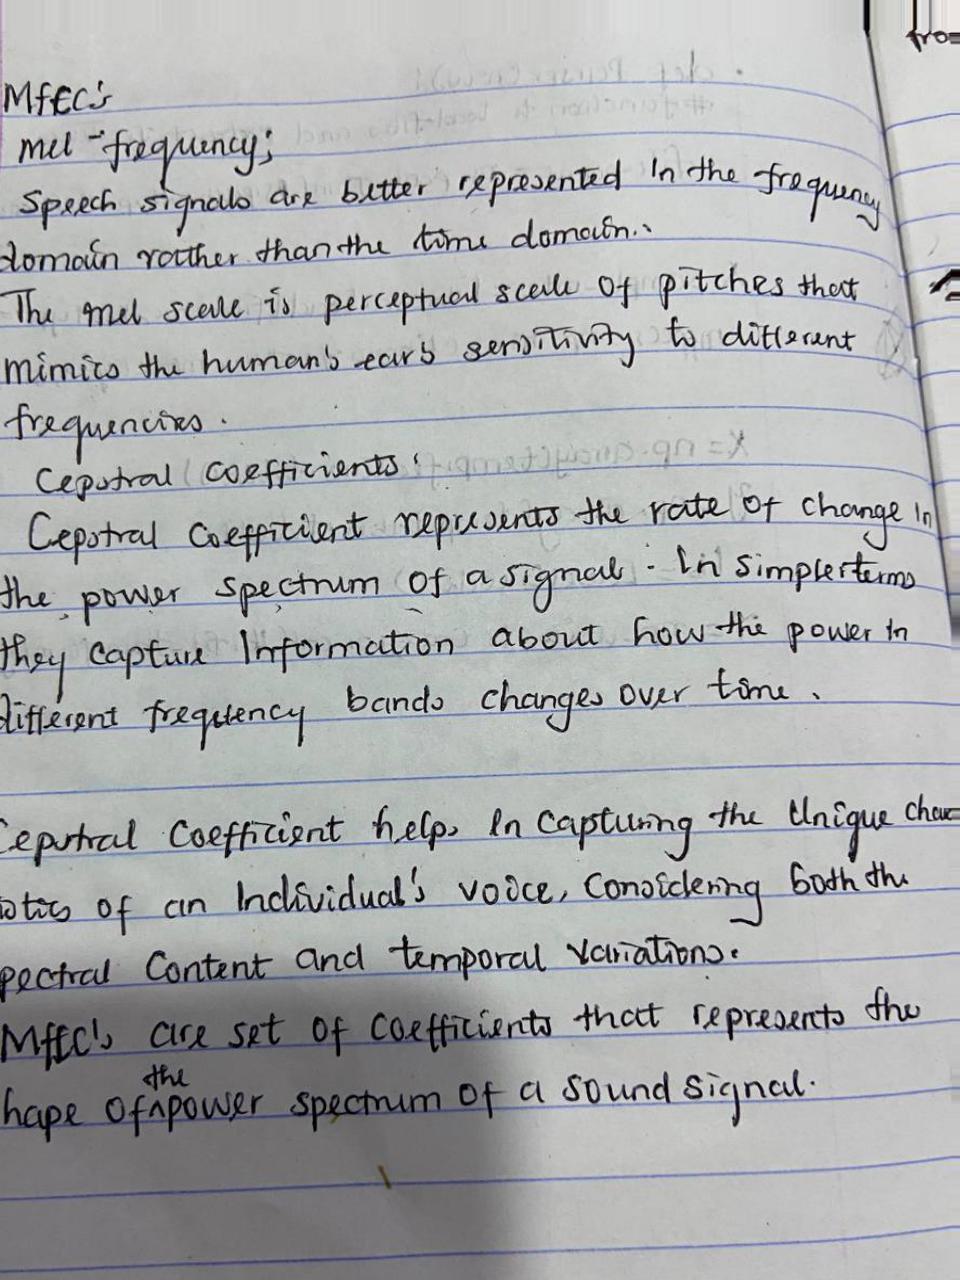 MFCC's
mel-frequency;
Speech signals are better represented in the frequency
domain rather than the time domain.
The mel scale is perceptual scale of pitches that
mimics the human's ear's sensitivity to different
frequencies.
Cepstral coefficients:
Cepstral Coefficient represents the rate of change in
the power spectrum of a signal. In simpler terms
they capture Information about how the power in
different frequency bands changes over time.
Cepstral Coefficient helps in capturing the Unique charac
istics of an Individual's voice, Considering both the
pectral Content and temporal variations.
MFCC's are set of coefficients that represents the
hape of the power spectrum of a sound signal.